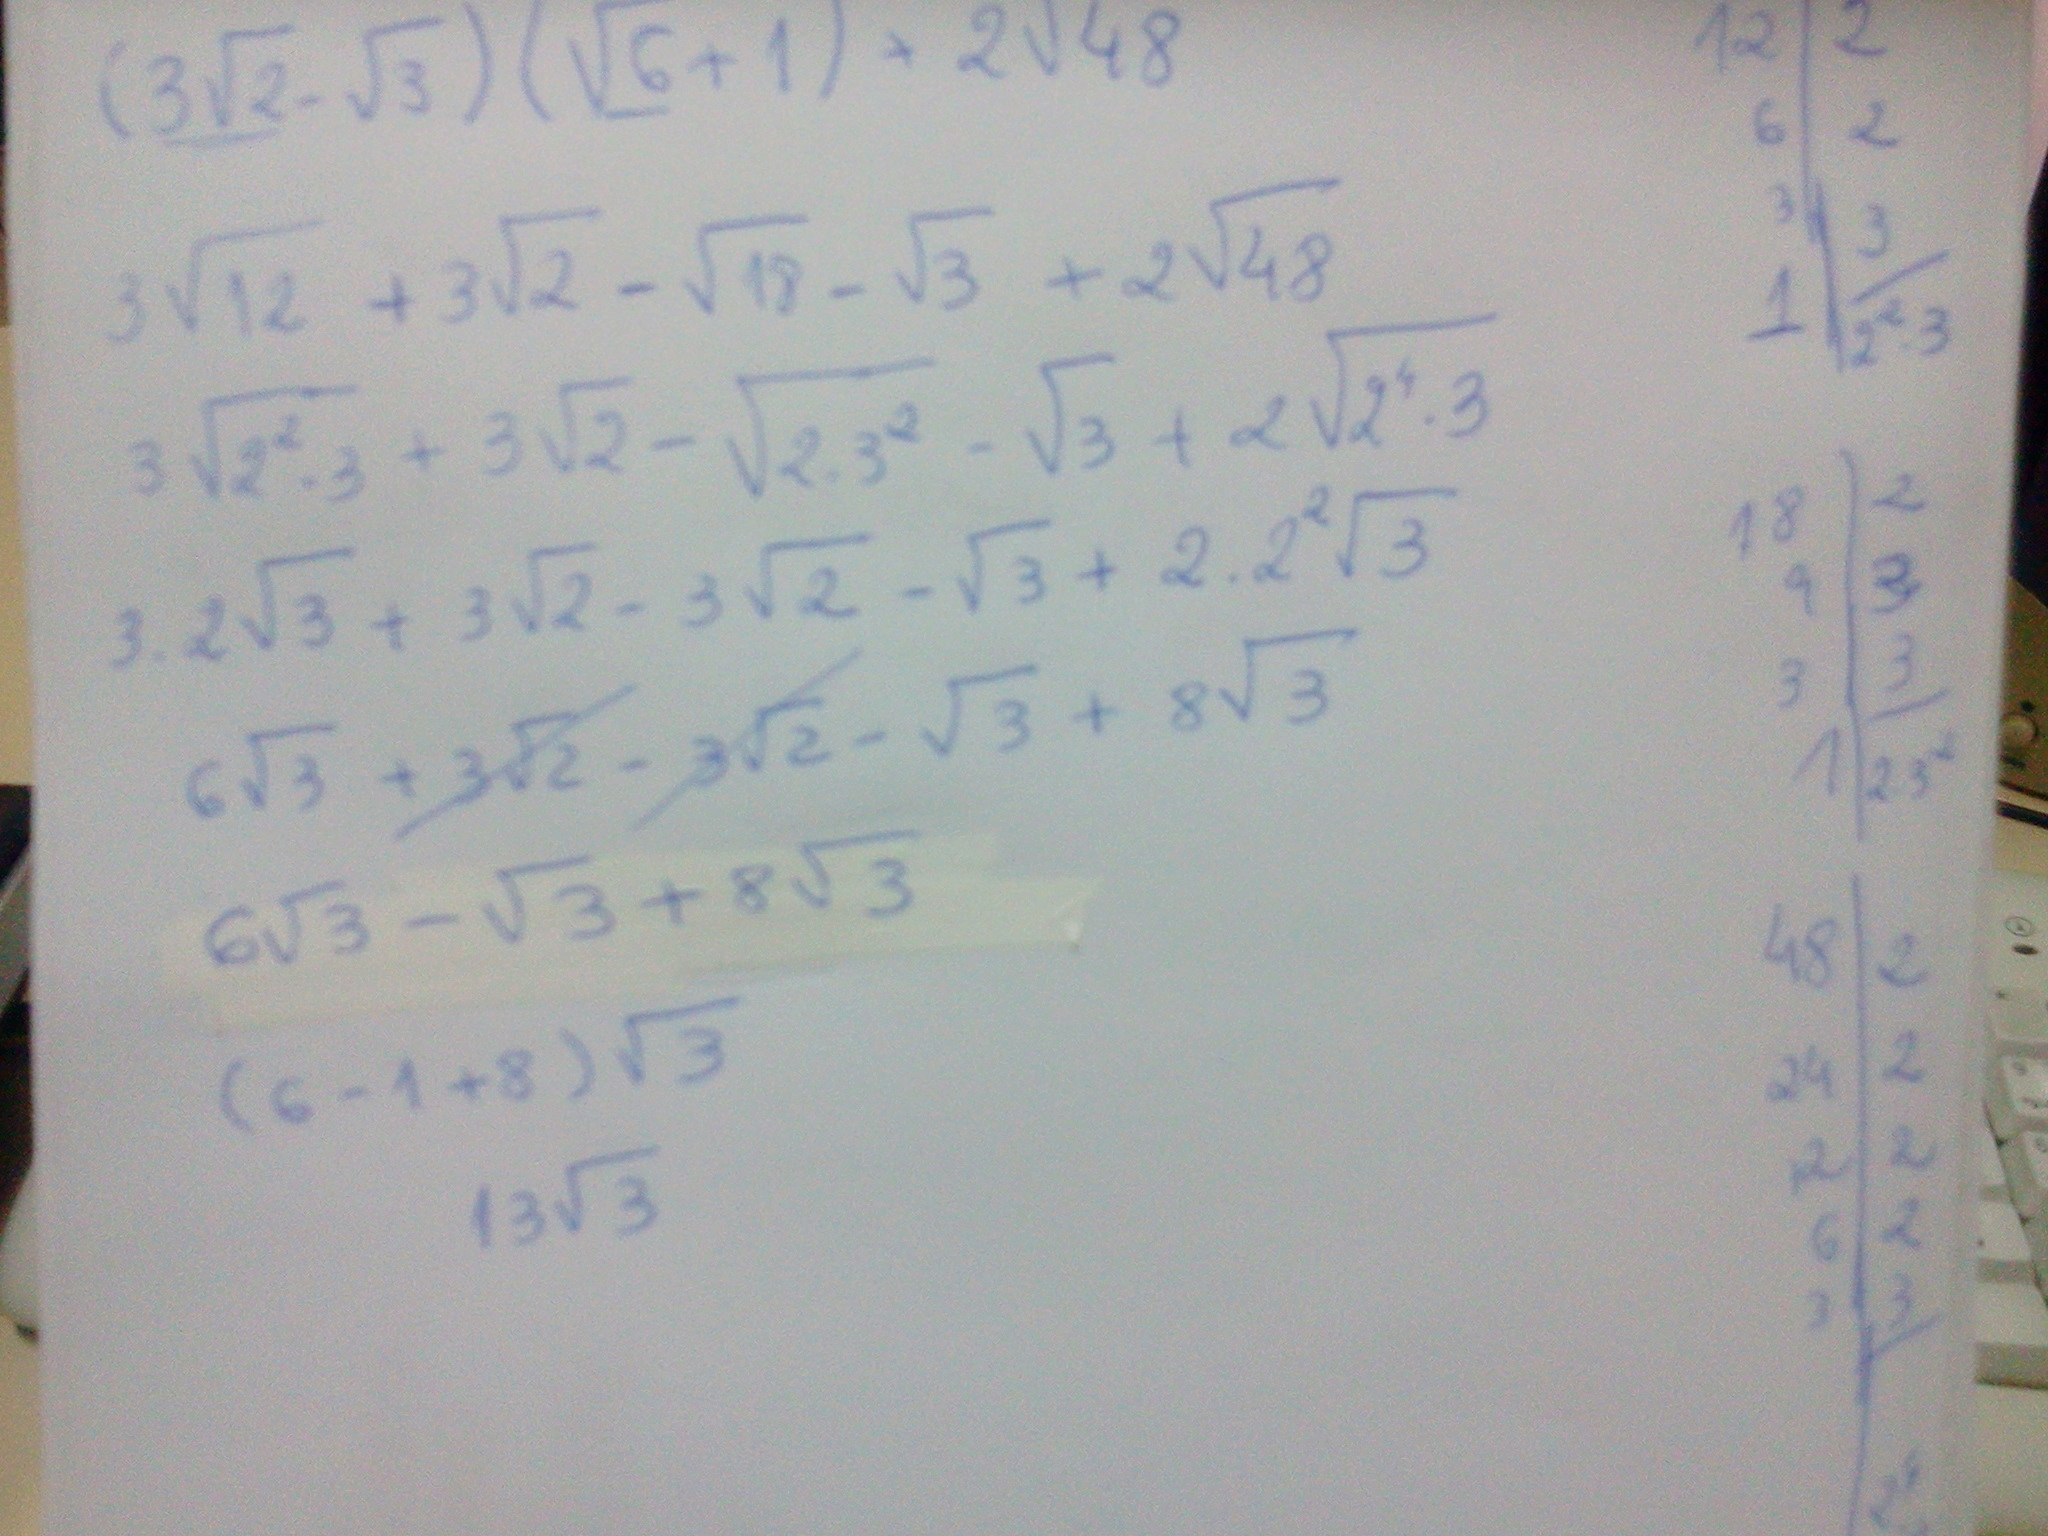 (3√2 - √3)(√6 + 1) + 2√48
3√12 + 3√2 - √18 - √3 + 2√48
3√2².3 + 3√2 - √2.3² - √3 + 2√2⁴.3
3.2√3 + 3√2 - 3√2 - √3 + 2.2²√3
6√3 + 3√2 - 3√2 - √3 + 8√3
6√3 - √3 + 8√3
(6 - 1 + 8)√3
13√3
12 | 2
6 | 2
3 | 3
1 | 2².3
18 | 2
9 | 3
3 | 3
1 | 2.3²
48 | 2
24 | 2
12 | 2
6 | 2
3 | 3
2⁴